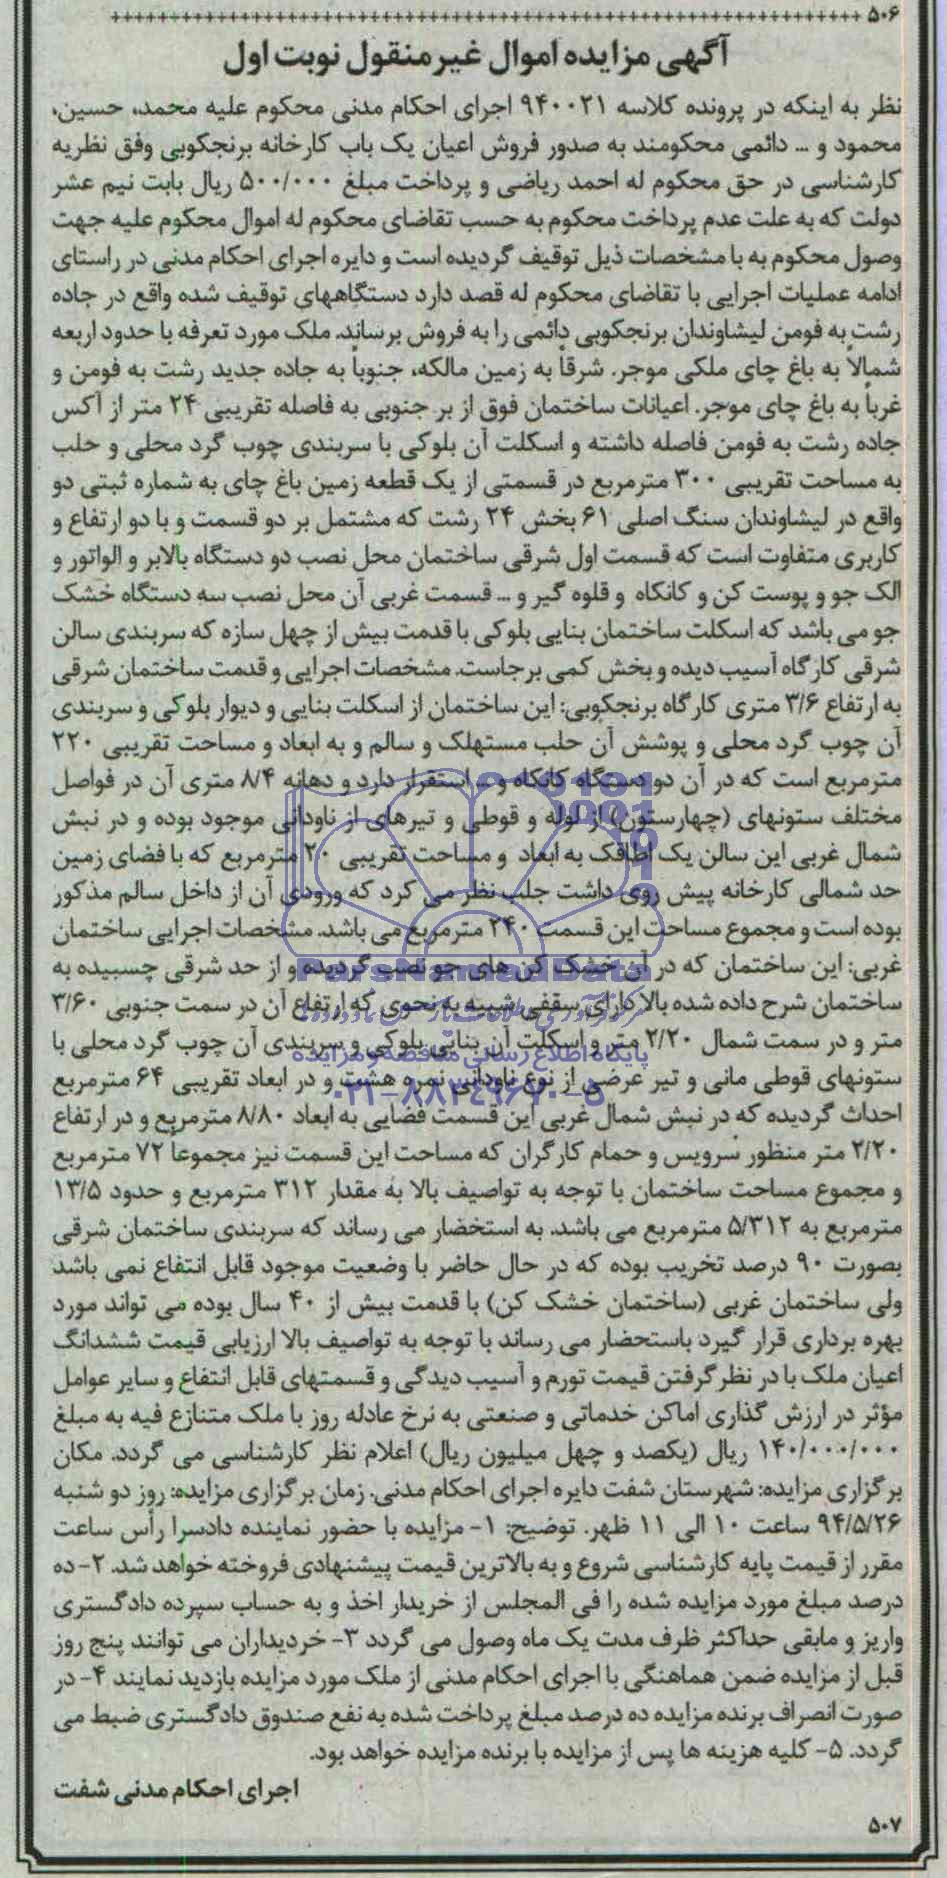 ۵۰۶
آگهی مزایده اموال غیر منقول نوبت اول
نظر به اینکه در پرونده کلاسه ۹۴۰۰۲۱ اجرای احکام مدنی محکوم علیه محمد، حسین،
محمود و ... دائمی محکومند به صدور فروش اعیان یک باب کارخانه برنجکوبی وفق نظریه
کارشناسی در حق محکوم له احمد ریاضی و پرداخت مبلغ ۵۰۰/۰۰۰ ریال بابت نیم عشر
دولت که به علت عدم پرداخت محکوم به حسب تقاضای محکوم له اموال محکوم علیه جهت
وصول محکوم به با مشخصات ذیل توقیف گردیده است و دایره اجرای احکام مدنی در راستای
ادامه عملیات اجرایی با تقاضای محکوم له قصد دارد دستگاههای توقیف شده واقع در جاده
رشت به فومن لیشاوندان برنجکوبی دائمی را به فروش برساند. ملک مورد تعرفه با حدود اربعه
شمالاً به باغ چای ملکی موجر. شرقاً به زمین مالکه، جنوباً به جاده جدید رشت به فومن و
غرباً به باغ چای موجر. اعیانات ساختمان فوق از بر جنوبی به فاصله تقریبی ۲۴ متر از آکس
جاده رشت به فومن فاصله داشته و اسکلت آن بلوکی با سربندی چوب گرد محلی و حلب
به مساحت تقریبی ۳۰۰ مترمربع در قسمتی از یک قطعه زمین باغ چای به شماره ثبتی دو
واقع در لیشاوندان سنگ اصلی ۶۱ بخش ۲۴ رشت که مشتمل بر دو قسمت و با دو ارتفاع و
کاربری متفاوت است که قسمت اول شرقی ساختمان محل نصب دو دستگاه بالابر و الواتور و
الک جو و پوست کن و کانکاه و قلوه گیر و ... قسمت غربی آن محل نصب سه دستگاه خشک
جو می باشد که اسکلت ساختمان بنایی بلوکی با قدمت بیش از چهل سازه که سربندی سالن
شرقی کارگاه آسیب دیده و بخش کمی برجاست. مشخصات اجرایی و قدمت ساختمان شرقی
به ارتفاع ۳/۶ متری کارگاه برنجکوبی: این ساختمان از اسکلت بنایی و دیوار بلوکی و سربندی
آن چوب گرد محلی و پوشش آن حلب مستهلک و سالم و به ابعاد و مساحت تقریبی ۲۲۰
مترمربع است که در آن دو دستگاه کانکاه و ... استقرار دارد و دهانه ۸/۴ متری آن در فواصل
مختلف ستونهای (چهارستون) از لوله و قوطی و تیرهای از ناودانی موجود بوده و در نبش
شمال غربی این سالن یک اطاقک به ابعاد و مساحت تقریبی ۲۰ مترمربع که با فضای زمین
حد شمالی کارخانه پیش روی داشت جلب نظر می کرد که ورودی آن از داخل سالم مذکور
بوده است و مجموع مساحت این قسمت ۲۴۰ مترمربع می باشد. مشخصات اجرایی ساختمان
غربی: این ساختمان که در آن خشک کن های جو نصب گردیده و از حد شرقی چسبیده به
ساختمان شرح داده شده بالا دارای سقفی شیبه به نحوی که ارتفاع آن در سمت جنوبی ۳/۶۰
متر و در سمت شمال ۲/۲۰ متر و اسکلت آن بنایی بلوکی و سربندی آن چوب گرد محلی با
ستونهای قوطی مانی و تیر عرضی از نوع ناودانی نمره هشت و در ابعاد تقریبی ۶۴ مترمربع
احداث گردیده که در نبش شمال غربی این قسمت فضایی به ابعاد ۸/۸۰ مترمربع و در ارتفاع
۲/۲۰ متر منظور سرویس و حمام کارگران که مساحت این قسمت نیز مجموعاً ۷۲ مترمربع
و مجموع مساحت ساختمان با توجه به تواصیف بالا به مقدار ۳۱۲ مترمربع و حدود ۱۳/۵
مترمربع به ۵/۳۱۲ مترمربع می باشد. به استحضار می رساند که سربندی ساختمان شرقی
بصورت ۹۰ درصد تخریب بوده که در حال حاضر با وضعیت موجود قابل انتفاع نمی باشد
ولی ساختمان غربی (ساختمان خشک کن) با قدمت بیش از ۴۰ سال بوده می تواند مورد
بهره برداری قرار گیرد باستحضار می رساند با توجه به تواصیف بالا ارزیابی قیمت ششدانگ
اعیان ملک با در نظر گرفتن قیمت تورم و آسیب دیدگی و قسمتهای قابل انتفاع و سایر عوامل
مؤثر در ارزش گذاری اماکن خدماتی و صنعتی به نرخ عادله روز با ملک متنازع فیه به مبلغ
۱۴۰/۰۰۰/۰۰۰ ریال (یکصد و چهل میلیون ریال) اعلام نظر کارشناسی می گردد. مکان
برگزاری مزایده: شهرستان شفت دایره اجرای احکام مدنی. زمان برگزاری مزایده: روز دو شنبه
۹۴/۵/۲۶ ساعت ۱۰ الی ۱۱ ظهر. توضیح: ۱- مزایده با حضور نماینده دادسرا رأس ساعت
مقرر از قیمت پایه کارشناسی شروع و به بالاترین قیمت پیشنهادی فروخته خواهد شد. ۲- ده
درصد مبلغ مورد مزایده شده را فی المجلس از خریدار اخذ و به حساب سپرده دادگستری
واریز و مابقی حداکثر ظرف مدت یک ماه وصول می گردد ۳- خردیداران می توانند پنج روز
قبل از مزایده ضمن هماهنگی با اجرای احکام مدنی از ملک مورد مزایده بازدید نمایند ۴- در
صورت انصراف برنده مزایده ده درصد مبلغ پرداخت شده به نفع صندوق دادگستری ضبط می
گردد. ۵- کلیه هزینه ها پس از مزایده با برنده مزایده خواهد بود.
اجرای احکام مدنی شفت
۵۰۷
ParsNamadData
پایگاه اطلاع رسانی مناقصه و مزایده
۰۲۱-۸۸۳۴۹۶۷۰-۵